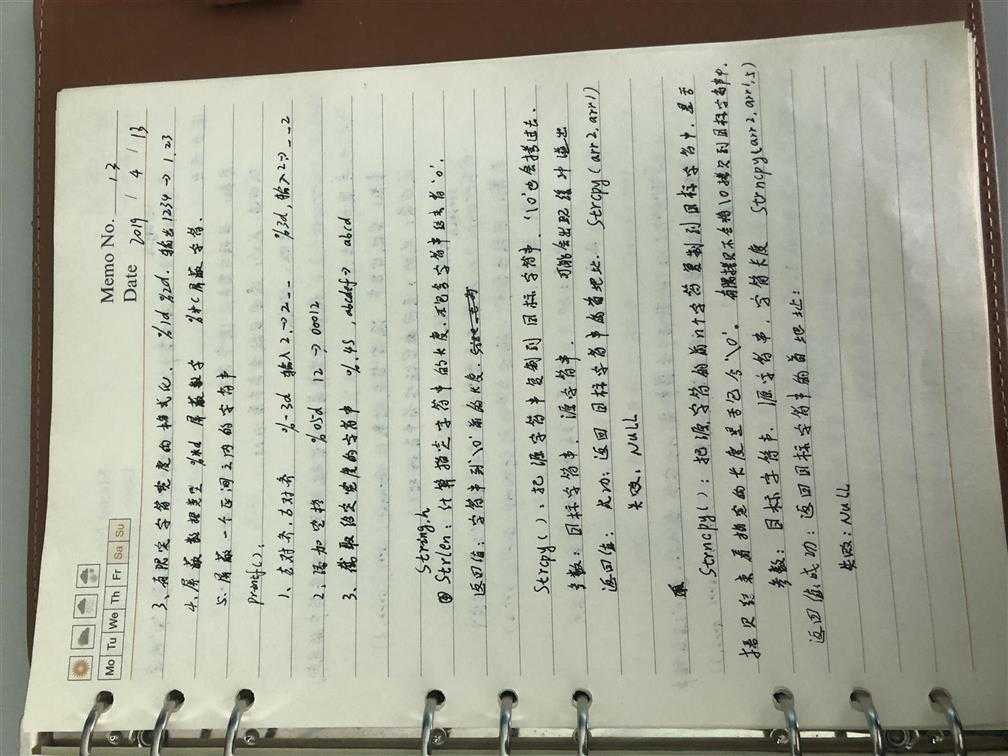 Memo No. 13
Mo Tu We Th Fr Sa Su
Date 2019 / 4 / 13
3、有限定字符宽度的格式化、 %1d %2d. 输出1234→1,23
4、屏蔽数据类型 %*d 屏蔽数字 %*c 屏蔽字符.
5、屏蔽一个区间之内的字符串
printf().
1、左对齐,右对齐 %-3d 输入2→2-- %3d,输入2→--2
2、添加空格 %05d 12→00012
3、截取指定宽度的字符串 %.4s,abcdef→abcd
String.h
Strlen:计算指定字符串的长度.不包含字符串结束符'\0'.
返回值:字符串到'\0'前的长度.
Strcpy():把源字符串复制到目标字符串.'\0'也会拷过去.
参数:目标字符串,源字符串. 可能会出现缓冲溢出
返回值:成功:返回目标字符串的首地址. Strcpy(arr2,arr1)
失败:NULL
Strncpy():把源字符的前n个字符复制到目标字符中,是否
拷贝结束看指定的长度是否包含'\0'。 有限拷贝不会将\0拷贝到目标字符串中.
参数:目标字符串,源字符串,字符长度 Strncpy(arr2,arr1,5)
返回值:成功:返回目标字符串的首地址:
失败:NULL